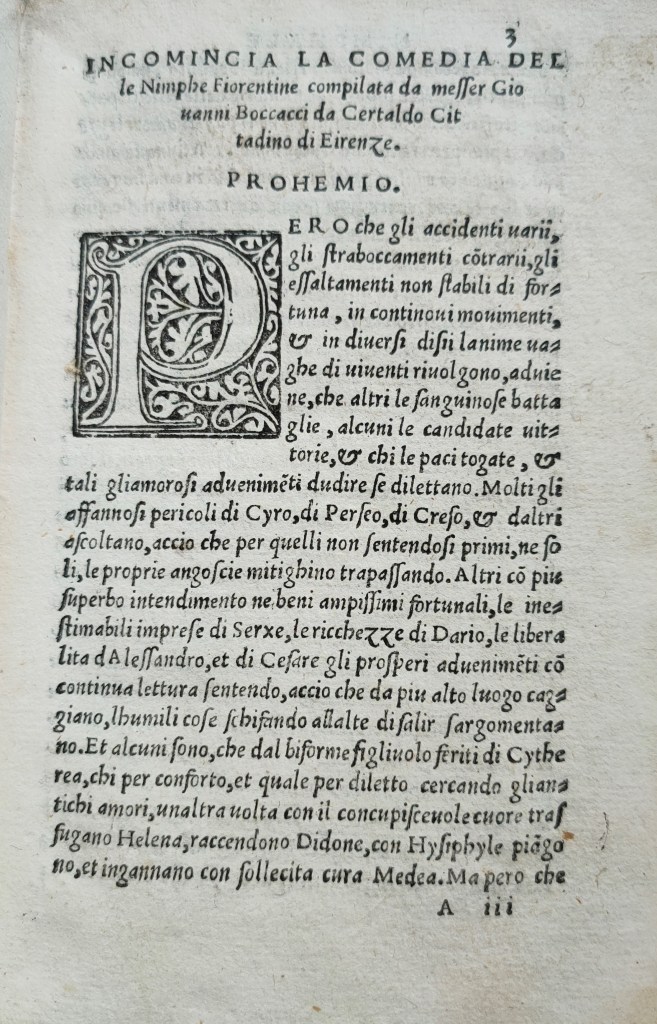 3
INCOMINCIA LA COMEDIA DEL
le Nimphe Fiorentine compilata da meſſer Gio
uanni Boccacci da Certaldo Cit
tadino di Firenze.
PROHEMIO.
PERO che gli accidenti uarii,
gli ſtraboccamenti cõtrarii, gli
eſſaltamenti non ſtabili di for⸗
tuna, in continoui mouimenti,
& in diuerſi diſii lanime ua⸗
ghe di uiuenti riuolgono, aduie
ne, che altri le ſanguinoſe batta
glie, alcuni le candidate uit⸗
torie, & chi le paci togate, &
tali gliamoroſi aduenimẽti dudire ſe dilettano. Molti gli
affannoſi pericoli di Cyro, di Perſeo, di Creſo, & daltri
aſcoltano, accio che per quelli non ſentendoſi primi, ne ſo
li, le proprie angoſcie mitighino trapaſſando. Altri cõ piu
ſuperbo intendimento ne beni ampiſſimi fortunali, le ine⸗
ſtimabili impreſe di Serxe, le ricchezze di Dario, le libera
lita dAleſſandro, et di Ceſare gli proſperi aduenimẽti cõ
continua lettura ſentendo, accio che da piu alto luogo cag⸗
giano, lhumili coſe ſchifando allalte di ſalir ſargomenta⸗
no. Et alcuni ſono, che dal biforme figliuolo feriti di Cythe
rea, chi per conforto, et quale per diletto cercando glian⸗
tichi amori, unaltra uolta con il concupiſceuole cuore traſ
fugano Helena, raccendono Didone, con Hyſiphyle piãgo
no, et ingannano con ſollecita cura Medea. Ma pero che
A iii